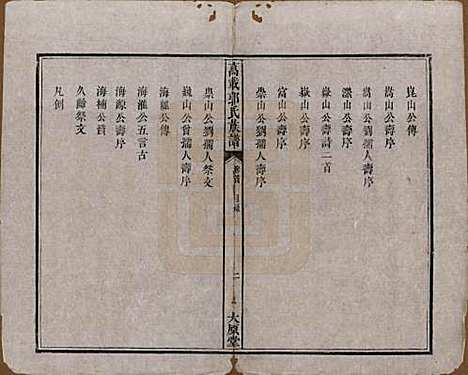 崑山公傳
嵩山公壽序
嵩山公劉孺人壽序
潔山公壽序
嶽山公壽詩二首
嶽山公壽序
富山公壽序
樂山公劉孺人壽序
萬載郭氏族譜
卷首
目錄
二
太原堂
樂山公劉孺人祭文
巍山公曾孺人壽序
海龍公傳
海滙公五言古
海源公壽序
海楠公贊
久歸祭文
凡例